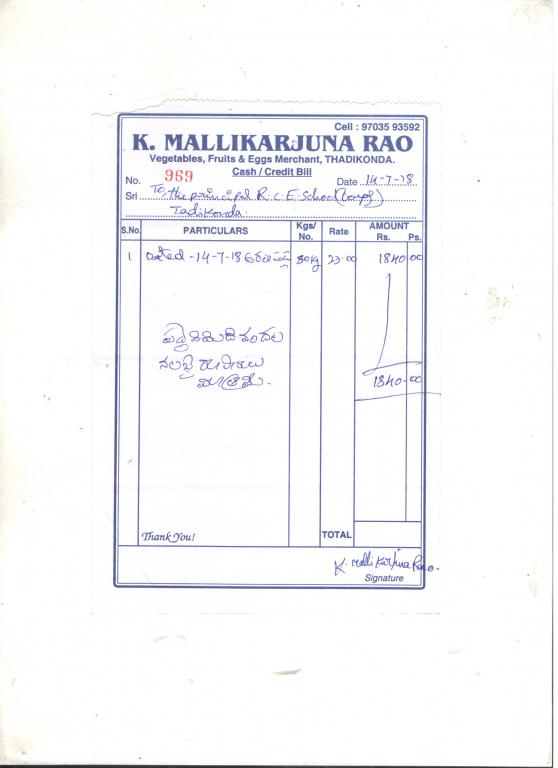 Cell : 97035 93592
K. MALLIKARJUNA RAO
Vegetables, Fruits & Eggs Merchant, THADIKONDA.
Cash / Credit Bill
No. 969 Date 14-7-18
Sri To, the principal R.C.E. School (Boys)
Tadikonda
S.No. PARTICULARS Kgs/No. Rate AMOUNT Rs. Ps.
1 Dated - 14-7-18 80kg 23.00 1840.00
నలభై రూపాయలు
మాత్రమే.
1840.00
Thank You! TOTAL
K. Mallikarjuna Rao.
Signature